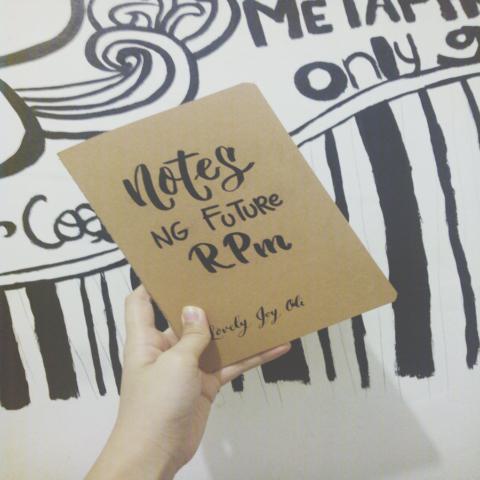 METAM
only
Coo
Notes
NG FUTURE
RPm
Lovely Joy Obi